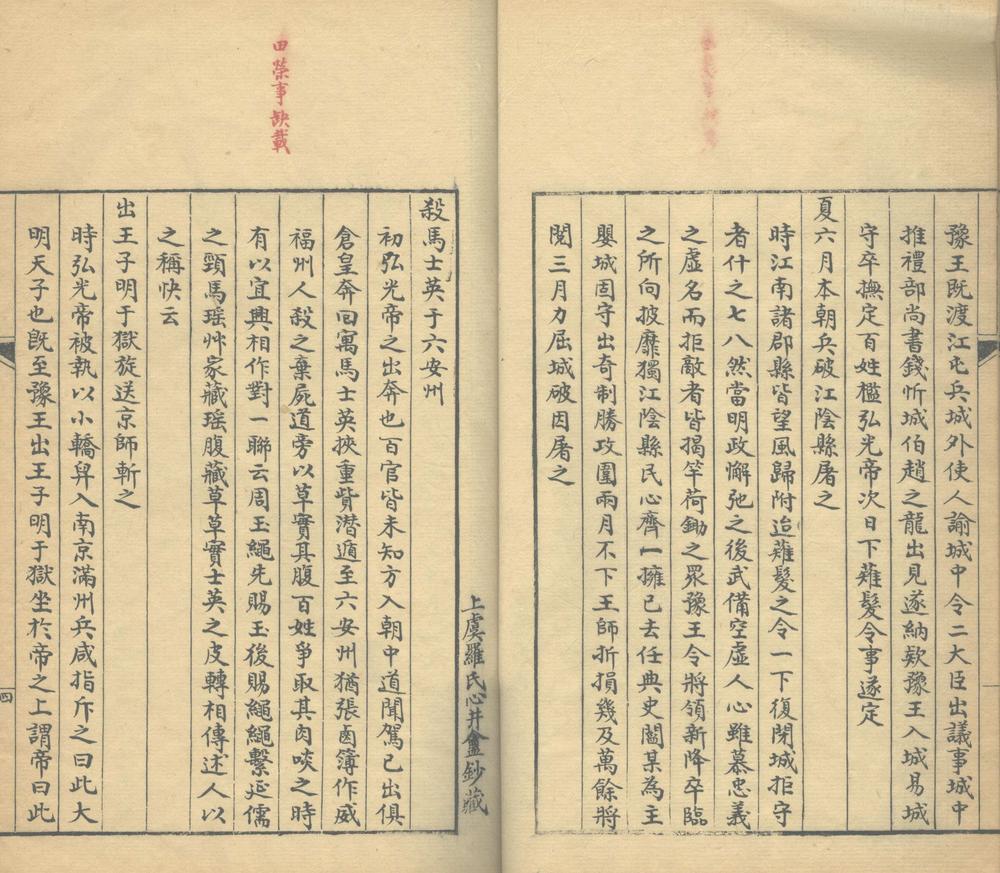 豫王既渡江屯兵城外使人諭城中令二大臣出議事城中
推禮部尚書錢忻城伯趙之龍出見遂納欵豫王入城易城
守卒撫定百姓檻弘光帝次日下薙髮令事遂定
夏六月本朝兵破江陰縣屠之
時江南諸郡縣皆望風歸附迨薙髮之令一下復閉城拒守
者什之七八然當明政懈弛之後武備空虛人心雖慕忠義
之虛名而拒敵者皆揭竿荷鋤之眾豫王令將領新降卒臨
之所向披靡獨江陰縣民心齊一擁已去任典史閻某為主
嬰城固守出奇制勝攻圍兩月不下王師折損幾及萬餘將
閱三月力屈城破因屠之
上虞羅氏心井盦鈔藏
田榮事缺載
殺馬士英于六安州
初弘光帝之出奔也百官皆未知方入朝中道聞駕已出俱
倉皇奔回寓馬士英挾重貲潛遁至六安州猶張鹵簿作威
福州人殺之棄屍道旁以草實其腹百姓爭取其肉啖之時
有以宜興相作對一聯云周玉繩先賜玉後賜繩繩繫延儒
之頸馬瑶艸家藏瑶腹藏草草實士英之皮轉相傳述人以
之稱快云
出王子明于獄旋送京師斬之
時弘光帝被執以小轎舁入南京滿州兵咸指斥之曰此大
明天子也既至豫王出王子明于獄坐於帝之上謂帝曰此
四